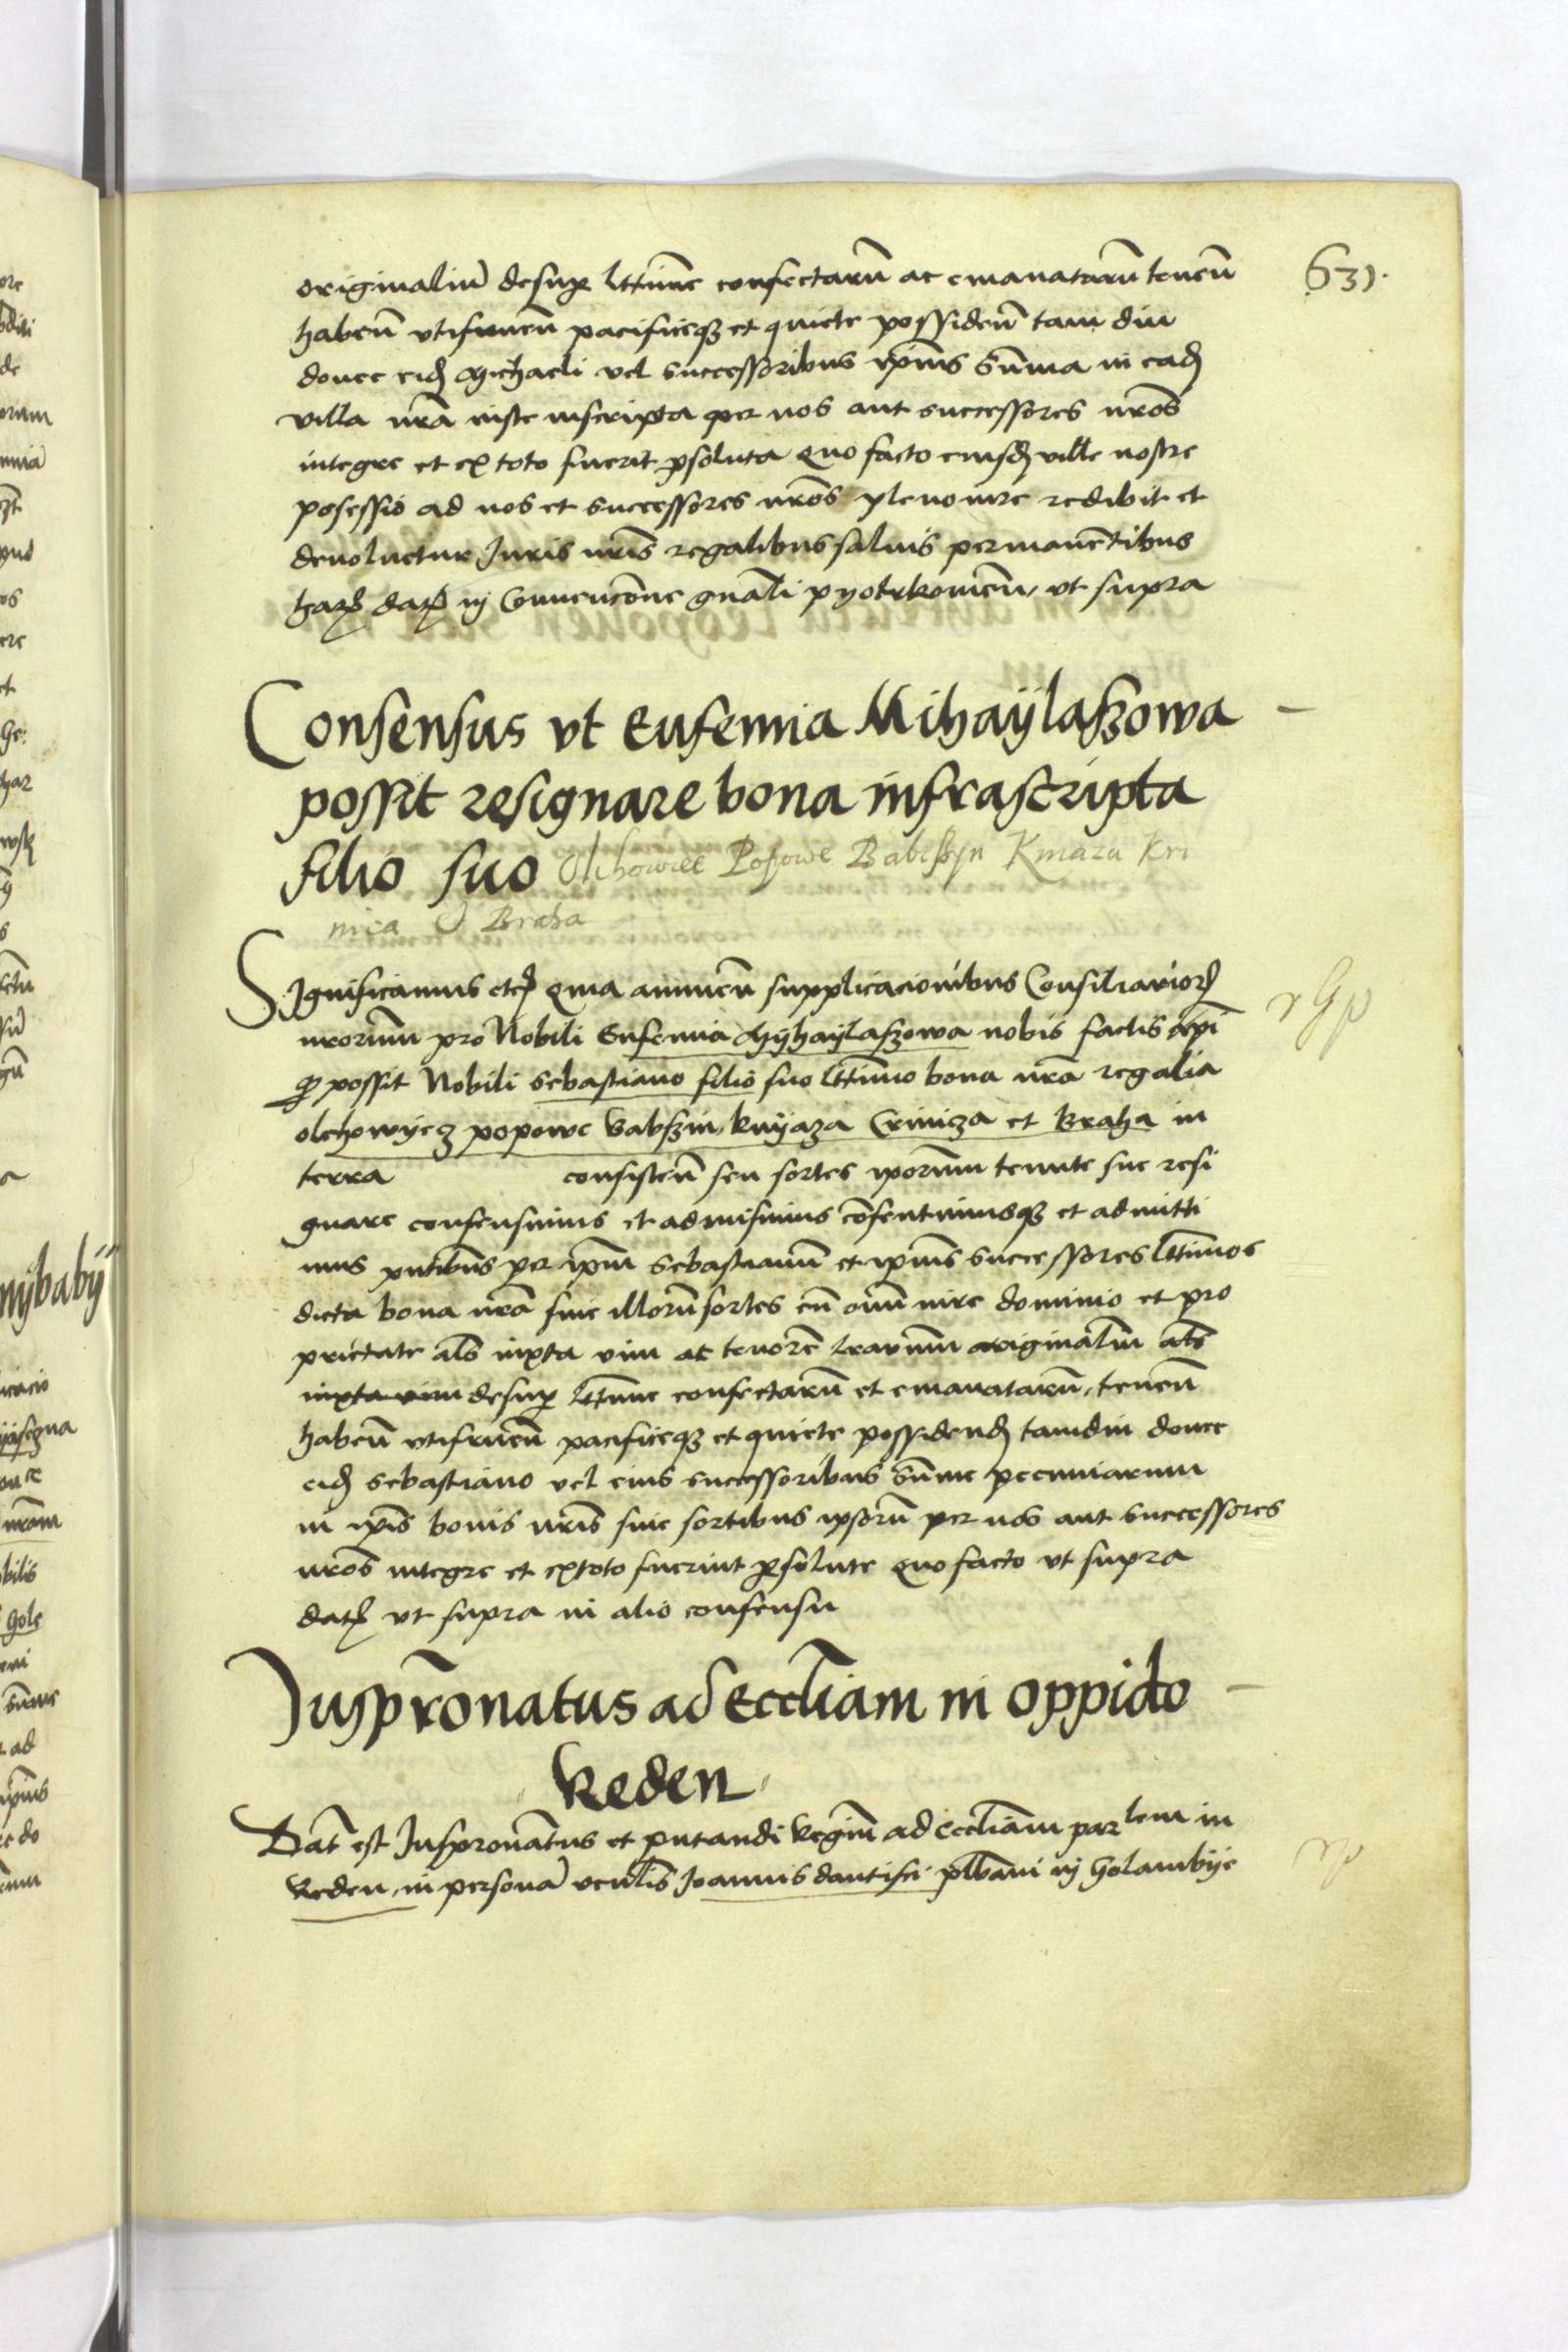 631.
originaliu desup lttime confectaru ac emanataru teneñ
habeñ vtifrueñ pacificeq3 et quiete possideñ tam diu
donec eid Michaeli vel successoribus ipius summa in ead
villa nra iuste inscripta per nos aut successores nros
integre et ex toto fuerit psoluta Quo facto eiusd ville nostre
posessio ad nos et successores nros pleno iure redibit et
deuoluetur Juris nris regalibus saluis permanetibus
har dat ij Conuencone gnali pyotrkouieñ vt supra
Consensus vt Eufemia Mihaÿlaszowa
possit resignare bona infrascripta
filio suo Olchowiec Popowe Babeszyn Kniaza Kri
nica & Braha
Significamus etc Quia annueñ supplicacionibus Consiliarior
nrorum pro Nobili Eufemia Mÿhaÿlaszowa nobis factis
q possit Nobili Sebastiano filio suo lttimo bona nra regalia
olchowÿecz popowe babszin knÿaza Crinicza et Braha in
terra consisteñ seu sortes iporum tenute sue resi
gnare consensimus et admisimus cosentimusq3 et admitti
mus pntibus per ipm Sebastianu et ipius successores lttimos
dicta bona nra siue illoru sortes cu omi iure dominio et pro
prietate als iuxta vim ac tenore lrarum originaliu als
iuxta vim desup lttime confectaru et emanataru, teneñ
habeñ vtifrueñ pacificeq3 et quiete possidend tamdiu donec
eid Sebastiano vel eius successoribus summe pecuniarum
in ipis bonis nris siue sortibus ipsoru per nos aut successores
nros integre et extoto fuerint psolute Quo facto vt supra
dat vt supra in alio consensu
Juspronatus ad Eccliam in oppido
Reden
Dat est Juspronatus et pntandi Regiu ad eccliam parlem in
Reden in persona venlis Joannis dantisci plbani ij Golambije